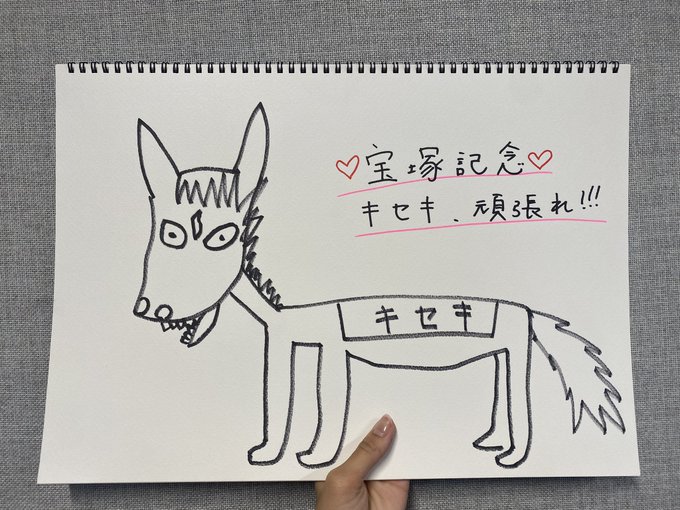 ♡宝塚記念♡
キセキ、頑張れ!!!
キセキ